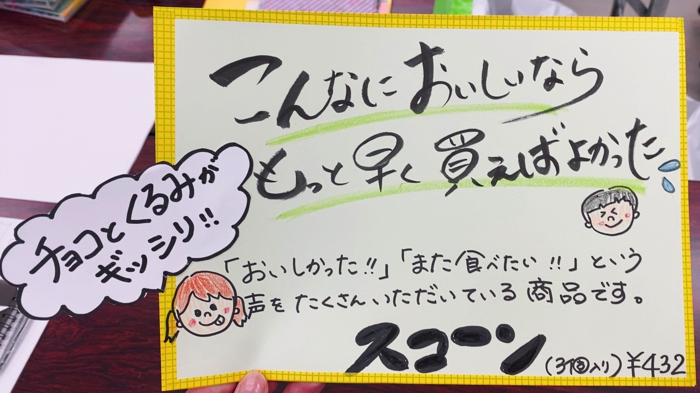 こんなにおいしいなら
もっと早く買えばよかった
チョコとくるみが
ギッシリ!!
「おいしかった!!」「また食べたい!!」という
声をたくさんいただいている商品です。
スコーン
(3個入り)¥432